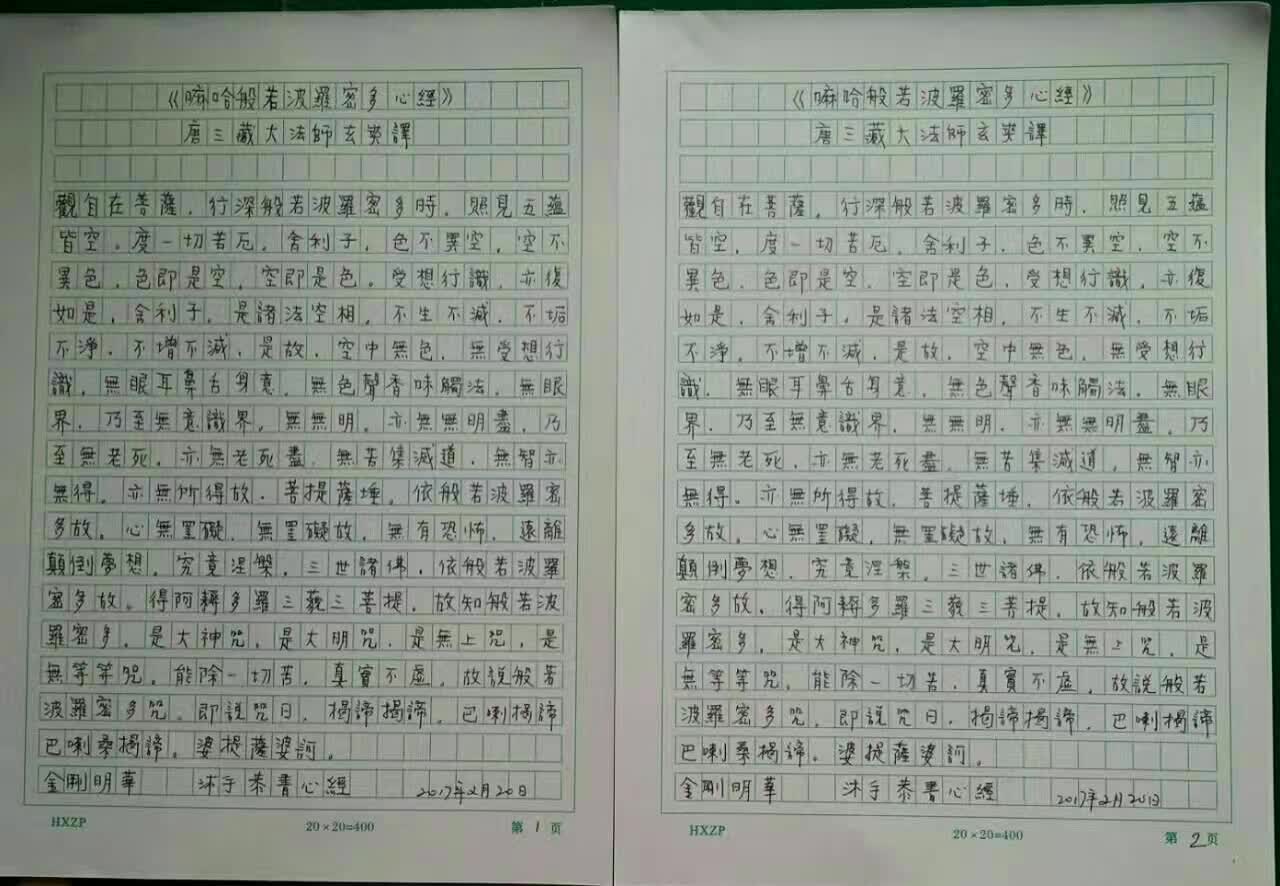 《嘛哈般若波羅密多心經》
唐三藏大法師玄奘譯
觀自在菩薩．行深般若波羅密多時．照見五蘊
皆空．度一切苦厄．舍利子．色不異空．空不
異色．色即是空．空即是色．受想行識．亦復
如是．舍利子．是諸法空相．不生不滅．不垢
不淨．不增不減．是故．空中無色．無受想行
識．無眼耳鼻舌身意．無色聲香味觸法．無眼
界．乃至無意識界．無無明．亦無無明盡．乃
至無老死．亦無老死盡．無苦集滅道．無智亦
無得．亦無所得故．菩提薩埵．依般若波羅密
多故．心無罣礙．無罣礙故．無有恐怖．遠離
顛倒夢想．究竟涅槃．三世諸佛．依般若波羅
密多故．得阿耨多羅三藐三菩提．故知般若波
羅密多．是大神咒．是大明咒．是無上咒．是
無等等咒．能除一切苦．真實不虛．故說般若
波羅密多咒．即說咒曰．揭諦揭諦．巴喇揭諦
巴喇桑揭諦．婆提薩婆訶．
金剛明華 沐手恭書心經 2017年2月20日
HXZP 20×20=400 第1页
《嘛哈般若波羅密多心經》
唐三藏大法師玄奘譯
觀自在菩薩．行深般若波羅密多時．照見五蘊
皆空．度一切苦厄．舍利子．色不異空．空不
異色．色即是空．空即是色．受想行識．亦復
如是．舍利子．是諸法空相．不生不滅．不垢
不淨．不增不減．是故．空中無色．無受想行
識．無眼耳鼻舌身意．無色聲香味觸法．無眼
界．乃至無意識界．無無明．亦無無明盡．乃
至無老死．亦無老死盡．無苦集滅道．無智亦
無得．亦無所得故．菩提薩埵．依般若波羅密
多故．心無罣礙．無罣礙故．無有恐怖．遠離
顛倒夢想．究竟涅槃．三世諸佛．依般若波羅
密多故．得阿耨多羅三藐三菩提．故知般若波
羅密多．是大神咒．是大明咒．是無上咒．是
無等等咒．能除一切苦．真實不虛．故說般若
波羅密多咒．即說咒曰．揭諦揭諦．巴喇揭諦
巴喇桑揭諦．婆提薩婆訶．
金剛明華 沐手恭書心經 2017年2月20日
HXZP 20×20=400 第2页